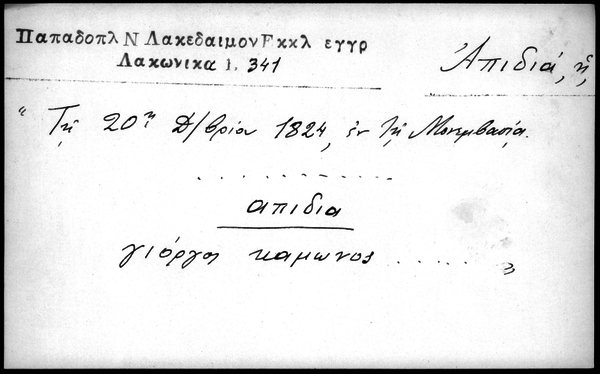 Παπαδοπλ Ν Λακεδαιμον Εκκλ εγγρ
Λακωνικα 1, 341
Ἀπιδιά, ἡ,
“ Τῇ 20ῃ Δ/βρίου 1824, ἐν τῇ Μονεμβασίᾳ.
. . . . . . . . . . . .
απιδια
γιόργος καμωνος . . . . . „